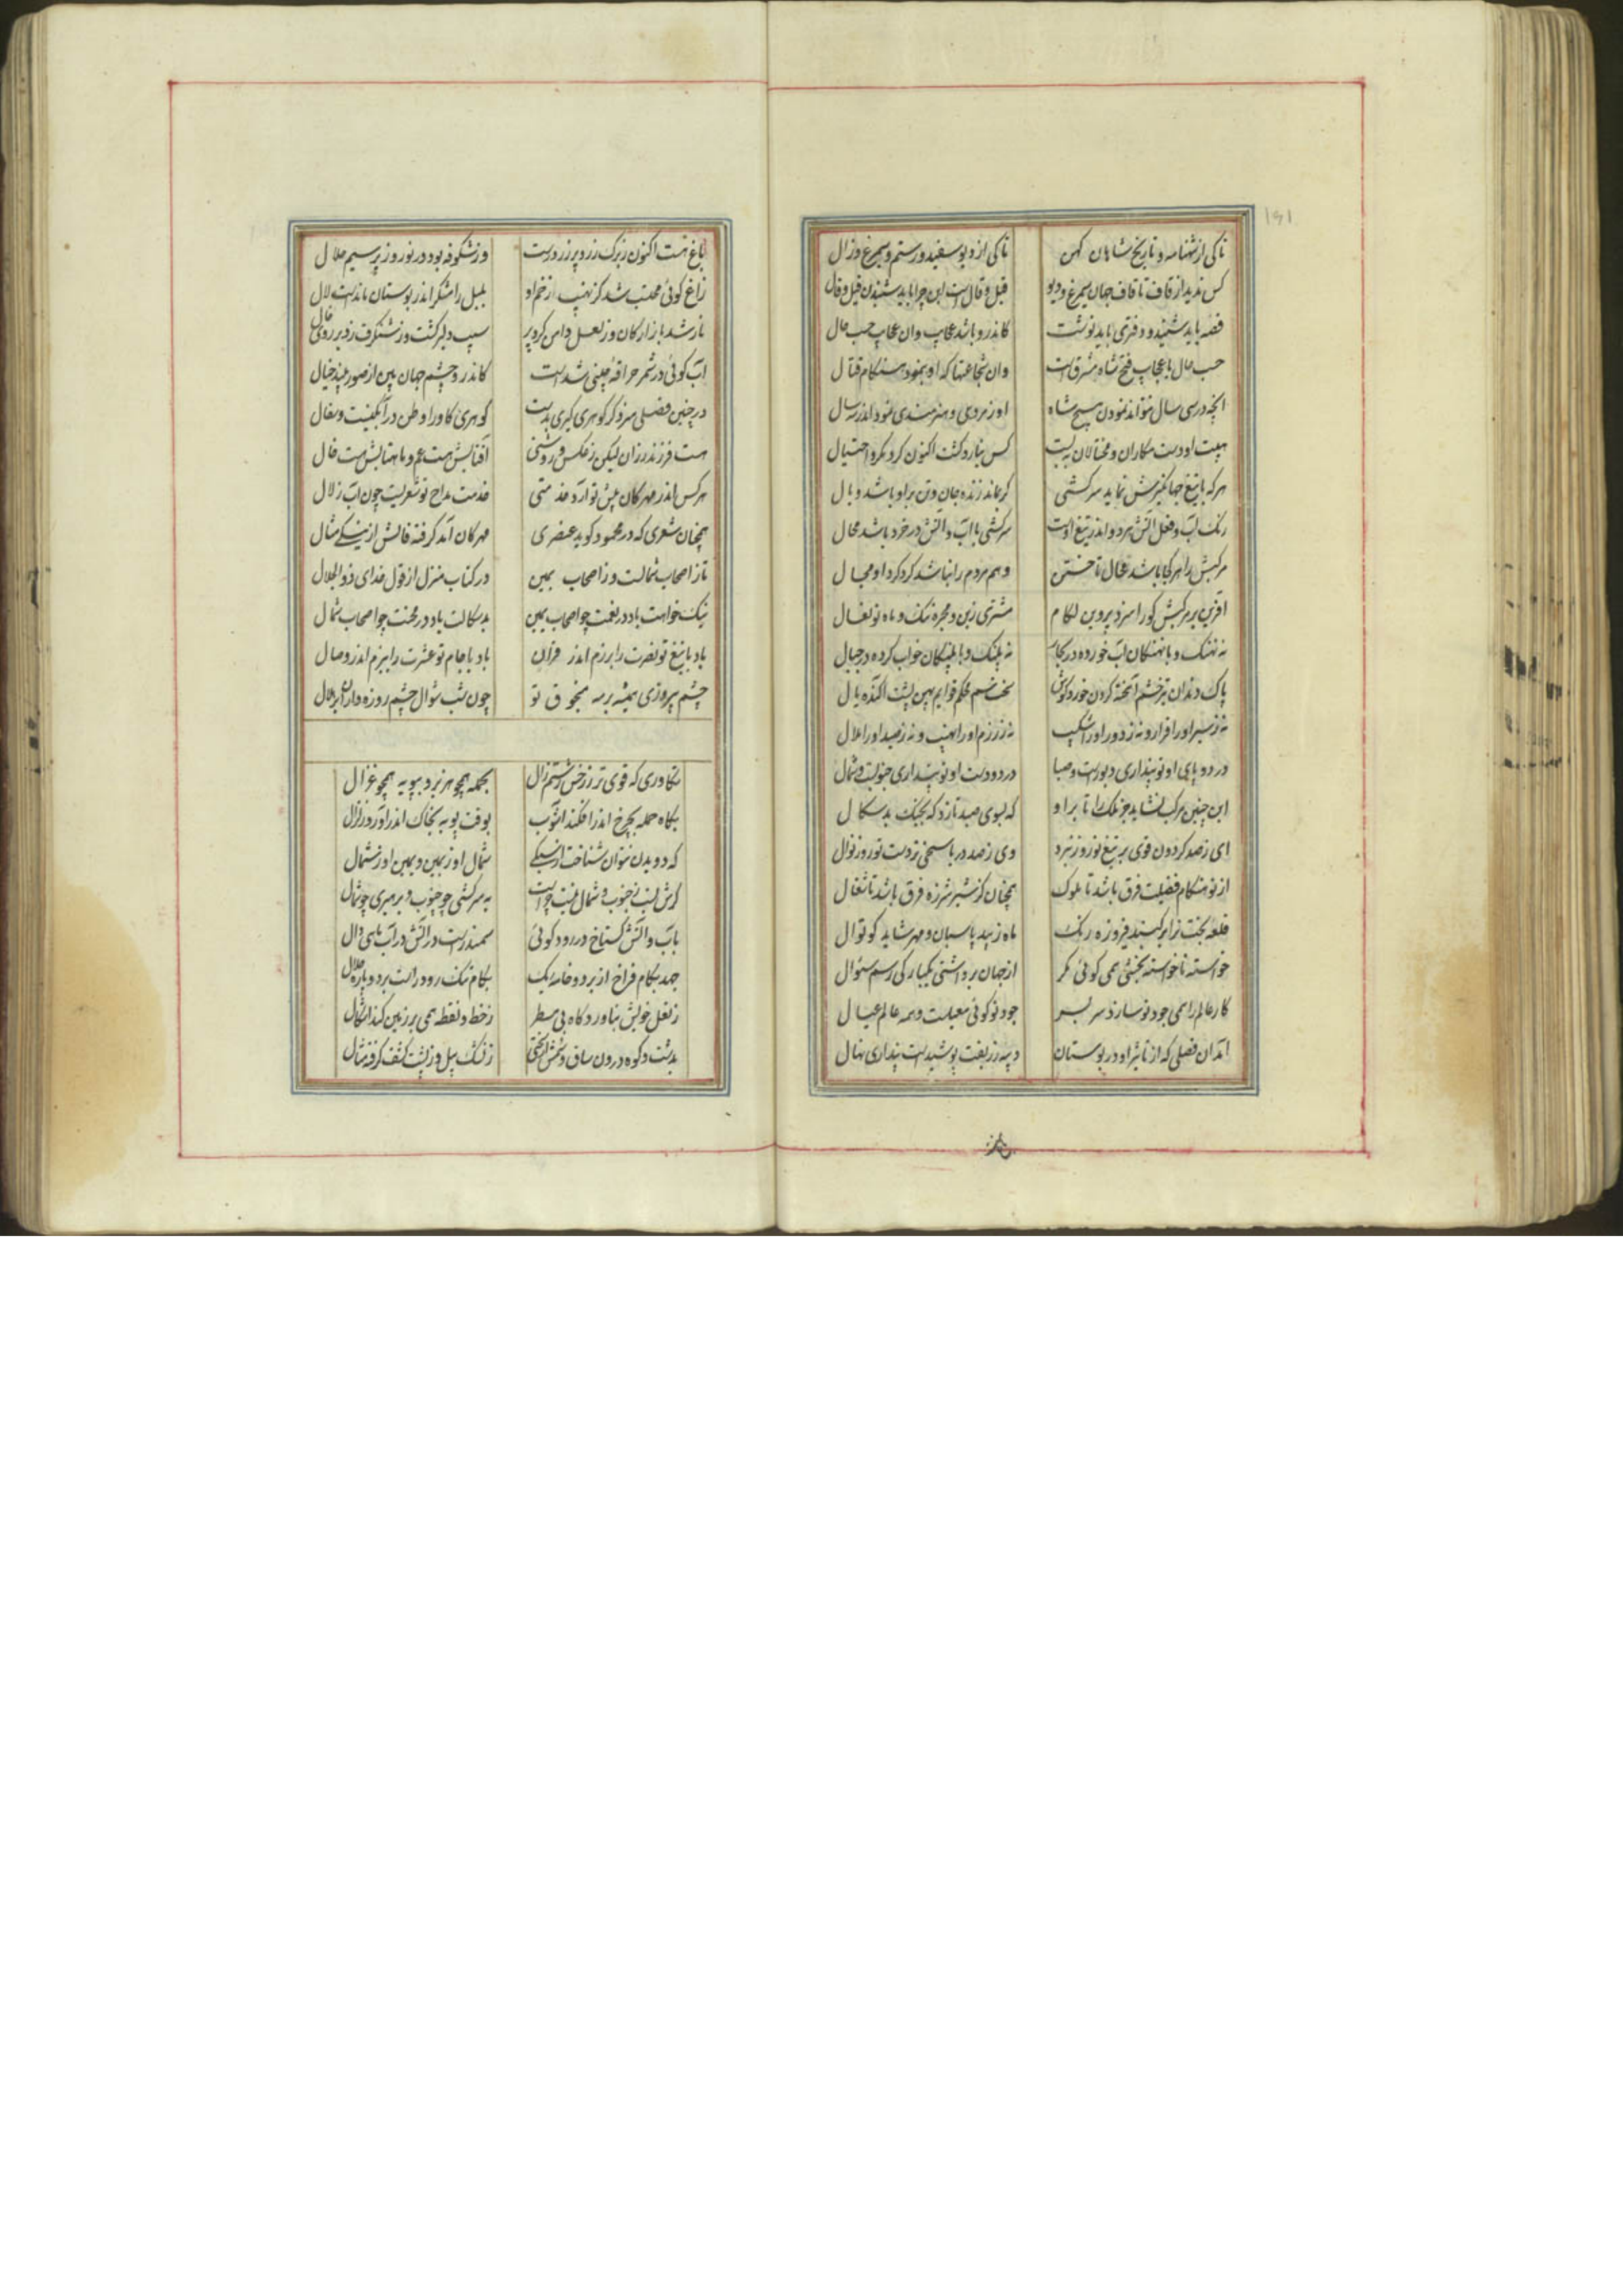 تا کی از شهنامه و تاریخ شاهان کهن تا کی از دیو سفید و رستم و سیمرغ و زال
کس ندید از قاف تا قاف جهان سیمرغ و دیو قیل و قال است این چرا باید شنیدن قیل و قال
قصه باید شنید و دفتری باید نوشت کاندرو باشد عجایب وان عجایب حسب حال
حسب حال با عجایب فتح شاه مشرق است وان شجاعتها که او بنمود هنکام قتال
انچه در سی سال نتواند نمودن هیچ شاه او ز مردی و هنرمندی نمود اندر سه سال
هیبت او دست مکاران و محتالان ببست کس نیارد کشت اکنون کرد مکر و احتیال
هر که با تیغ جهانکیرش نماید سرکشی کر بماند زنده جان و تن برو باشد وبال
رنک اب و فعل اتش هر دو اندر تیغ اوست سرکشی با اب و اتش در خرد باشد محال
مرکبش را هر کجا باشد مجال تاختن وهم مردم را نباشد کرد کرد او مجال
افرین بر مرکبش کو را سزد پروین لکام مشتری زین و مجره تنک و ماه نو نعال
نه نهنک و با نهنکان اب خورده در بحار نه پلنک و با پلنکان خواب کرده در جبال
پاک دندان تیز چشم اهخته کردن خورد کوش سخت سم محکم قوایم پهن پشت اکنده یال
نه ز سیر او را قرار و نه ز دور او را شکیب نه ز رزم او را نهیب و نه ز صید او را ملال
در دو پای او تو پنداری دبورست و صبا در دو دست او تو پنداری جنوبست و شمال
این چنین مرکب نشاید جز ملک را تا برا و که بسوی صید تازد که بجنک بدسکال
ای ز صد کردون قوی تر تیغ تو روز نبرد وی ز صد دریا سخی تر دست تو روز نوال
از تو هنکام فضیلت فرق باشد تا ملوک همچنان کز شیر شرزه فرق باشد تا شغال
قلعه بخت ترا بر کنبد فیروزه رنک ماه زیبد پاسبان و مهر شاید کوتوال
خواسته ناخواسته بخشی همی کوئی مکر از جهان برداشتی یکبارکی رسم سئوال
کار عالم را همی جود تو سازد سر بسر جود تو کوئی معیلست و همه عالم عیال
امد ان فصلی که از تاثیر او در بوستان دیبه زربفت پوشیدست پنداری نهال
باغ هست اکنون ز برک زرد پر زر درست وز شکوفه بود در نوروز پر سیم حلال
زاغ کوئی محتسب شد کز نهیب زخم او بلبل رامشکر اندر بوستان ماندست لال
نار شد بازارکان وز لعل دامن کرد پر سیب دلبر کشت وز شنکرف زد بر روی خال
اب کوئی در شمر حراقه چینی شدست کاندرو چشم جهان بین از صور بیند خیال
در چنین فصلی سزد کر کوهری کیری بدست کوهری کاورا وطن در ابکینست و سفال
هست فرزند رزان لیکن ز عکس و روشنی افتابش هست عم و ماهتابش هست خال
هر کس اندر مهرکان پیش تو ارد خدمتی خدمت مداح تو شعریست چون اب زلال
همچنان شعری که در محمود کوید عنصری مهرکان امد کرفته فالش از نیکی مثال
تاز اصحاب شمالست و ز اصحاب یمین در کتاب منزل از قول خدای ذوالجلال
نیک خواهت باد در نعمت چو اصحاب یمین بدسکالت باد در محنت چو اصحاب شمال
باد با تیغ تو نصرت را برزم اندر قران باد با جام تو عشرت را ببزم اندر وصال
چشم پیروزی همیشه بر مه منجوق تو چون شب شوال چشم روزه داران بر هلال
تکاوری که قوی تر ز رخش رستم زال بحمله همچو هزبر و بپویه همچو غزال
بکاه حمله بچرخ اندر افکند اشوب بوقت پویه بخاک اندر اورد زلزال
که دویدن نتوان شناخت از سبکی شمال او ز یمین و یمین او ز شمال
کرش نسب ز جنوب و شمال نیست چراست به سرکشی چو جنوب و برهبری چو شمال
باب و اتش کستاخ در رود کوئی سمندرست در اتش در اب ماهی دال
جهد بکام فراخ از بر دو خانه یک بکام تنک رود راست بر دو پاره هلال
ز نعل خویش بناورد کاه بی مسطر ز خط و نقطه همی بر زمین کند اشکال
بدشت و کوه درون ساق و سمش ز نسک پیل و ز پشت کشف کرفته مثال